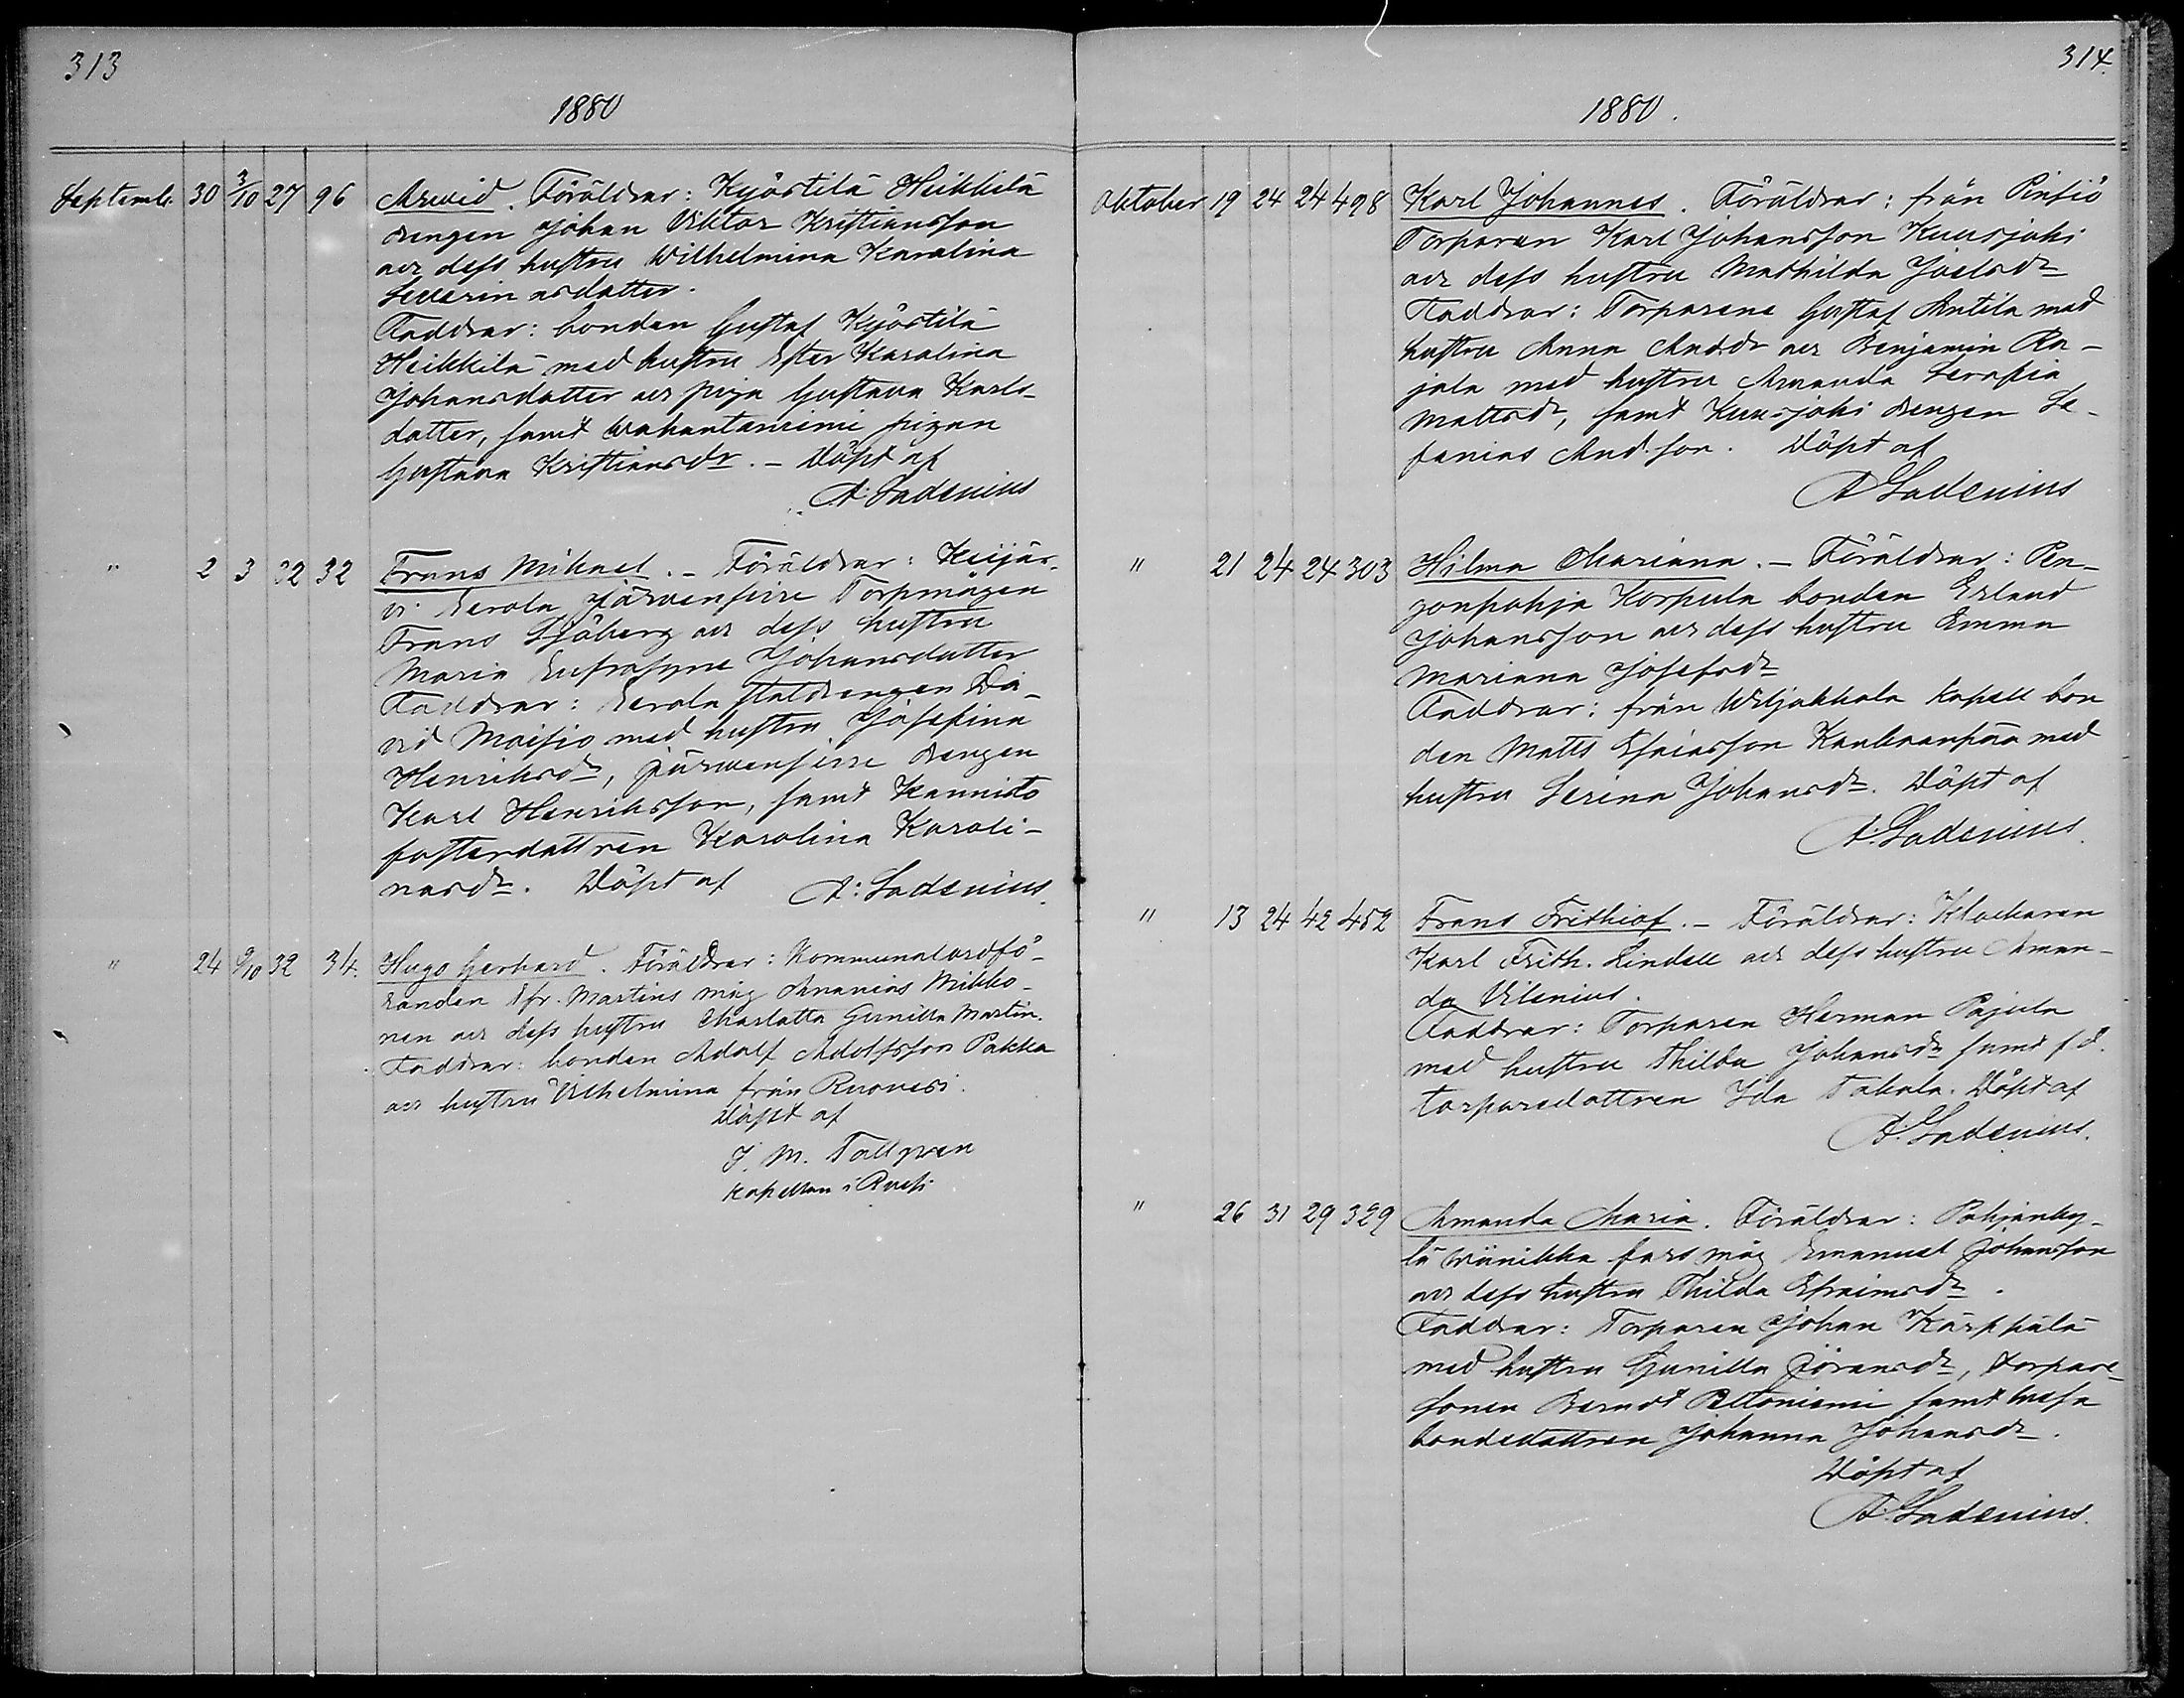 313
1880
Septemb. 30 3/10 27 96 Arvid. Föräldrar: Kyöstilä Heikkilä
drengen Johan Viktor Kristiansson
och dess hustru Wilhelmina Karolina
Severinasdotter.
Faddrar: bonden Gustaf Kyöstilä
Heikkilä med hustru Ester Karolina
Johansdotter och piga Gustava Karls-
dotter, samt Wahantaniemi pigan
Gustava Kristiansdr. - Döpt af
A: Ladenius
" 2 3 32 32 Frans Mikael. - Föräldrar: Kuijär-
vi Eerola Järvensivu Torpmågen
Frans Sjöberg och dess hustru
Maria Eufrosyne Johansdotter
Faddrar: Eerola Stalldrengen Da-
vid Moisio med hustru Josefina
Henriksdr, Järvensivu drengen
Karl Henriksson, samt Kannisto
fosterdottren Karolina Karoli-
nasdr. Döpt af A: Ladenius.
" 24 9/10 32 34. Hugo Gerhard. Föräldrar: Kommunalordfö-
randen Efr. Martins måg Ananias Mikko-
nen och dess hustru Charlotta Gunilla Martin.
Faddrar: bonden Adolf Adolfsson Pakka
och hustru Vilhelmina från Ruovesi.
Döpt af
J. M. Tallgren
Kapellan i Ruovesi
314.
1880.
Oktober 19 24 24 498 Karl Johannes. Föräldrar: från Pinsiö
Torparen Karl Johansson Kuusjoki
och dess hustru Mathilda Joelsdr
Faddrar: Torparene Gustaf Antila med
hustru Anna Andsdr och Benjamin Ra-
jala med hustru Amanda Serafia
Mattsdr, samt Kuusjoki drengen Se-
fanias And.son. Döpt af
A Ladenius
" 21 24 24 303 Hilma Mariana. - Föräldrar: Pen-
gonpohja Korpula bonden Erland
Johansson och dess hustru Emma
Mariana Josefsdr
Faddrar: från Viljakkala kapell bon
den Matts Esaiasson Kankaanpää med
hustru Serina Johansdr. Döpt af
A: Ladenius.
" 13 24 42 452 Frans Frithiof. - Föräldrar: Klockaren
Karl Frith. Lindell och dess hustru Aman-
da Vilenius.
Faddrar: Torparen Herman Pajula
med hustru Thilda Johansdr samt f.d.
torparedottren Ida Takala. Döpt af
A: Ladenius.
" 26 31 29 329 Amanda Maria. Föräldrar: Pohjanky-
lä Wänikka fars måg Emanuel Johansson
och dess hustru Thilda Efraimsdr.
Faddrar: Torparen Johan Kärppälä
med hustru Gunilla Göransdr, torpare-
sonen Berndt Peltoniemi samt
bondedottren Johanna Johansdr.
Döpt af
A: Ladenius.